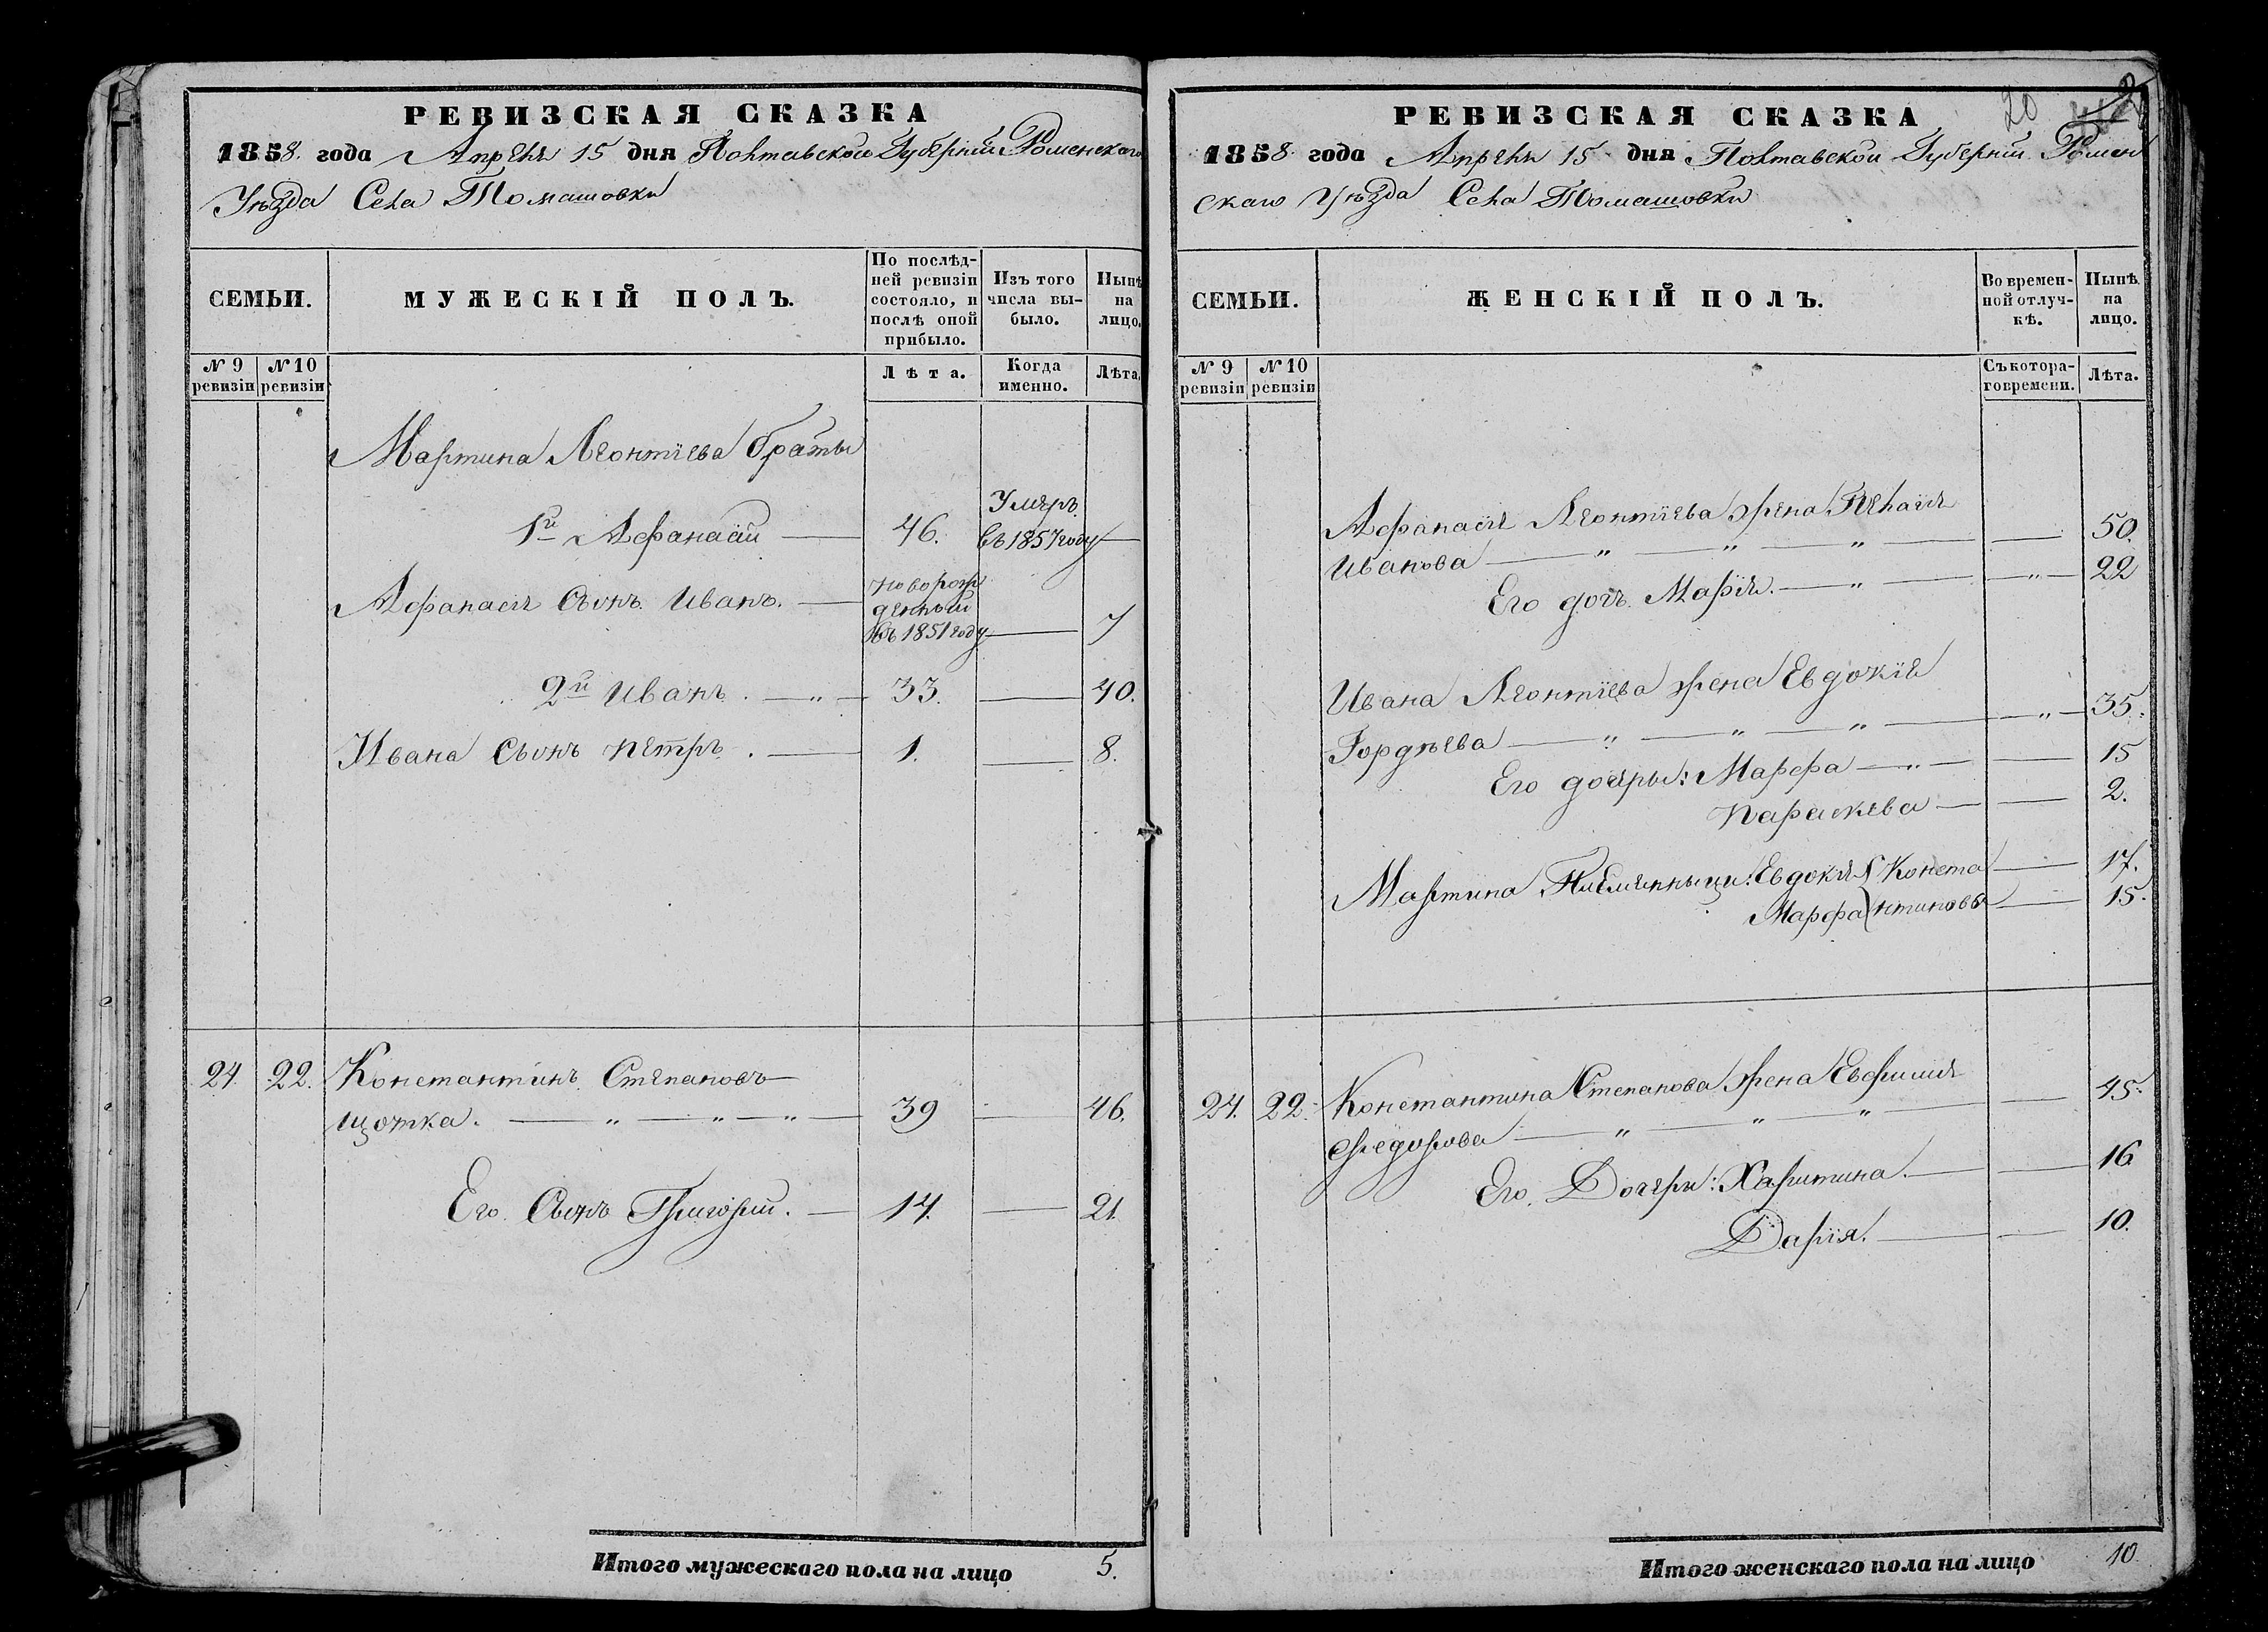 РЕВИЗСКАЯ СКАЗКА
1858. года Апрѣля 15 дня Полтавской Губерніи Роменскаго
Уѣзда Села Томашовки
СЕМЬИ.
МУЖЕСКІЙ ПОЛЪ.
По послѣд-
ней ревизіи
состояло, и
послѣ оной
прибыло.
Изъ того
числа вы-
было.
Нынѣ
на
лицо.
№ 9
ревизіи
№ 10
ревизіи
Лѣта.
Когда
именно.
Лѣта.
Мартина Леонтіева браты
1й Афанасій 46. Умеръ
въ 1857 году
Афанасія Сынъ Иванъ. новорож
денный
въ 1851 году 7
2й Иванъ. 33. 40.
Ивана Сынъ Петръ. 1. 8.
24. 22. Константинъ Степановъ
щотка. 39 46.
Его Сынъ Григорій. 14. 21
Итого мужескаго пола на лицо 5.
20
РЕВИЗСКАЯ СКАЗКА
1858 года Апреля 15 дня Полтавской Губерніи Ромен
скаго Уѣзда Села Томашовки
СЕМЬИ.
ЖЕНСКІЙ ПОЛЪ.
Во времен-
ной отлуч-
кѣ.
Нынѣ
на
лицо.
№ 9
ревизіи
№ 10
ревизіи
Съ котора-
го времени.
Лѣта.
Афанасія Леонтіева жена Пелагія
Иванова 50.
Его дочь Марія. 22
Ивана Леонтіева жена Евдокія
Гордѣева 35.
Его дочеры: Марфа 15
Параскева 2.
Мартина Племянныци: Евдокія Конста 17.
Марфа нтиновы 15.
24. 22. Константина Степанова жена Евфимія 45.
Федорова
Его Дочери: Харитина. 16
Дарія. 10.
Итого женскаго пола на лицо 10